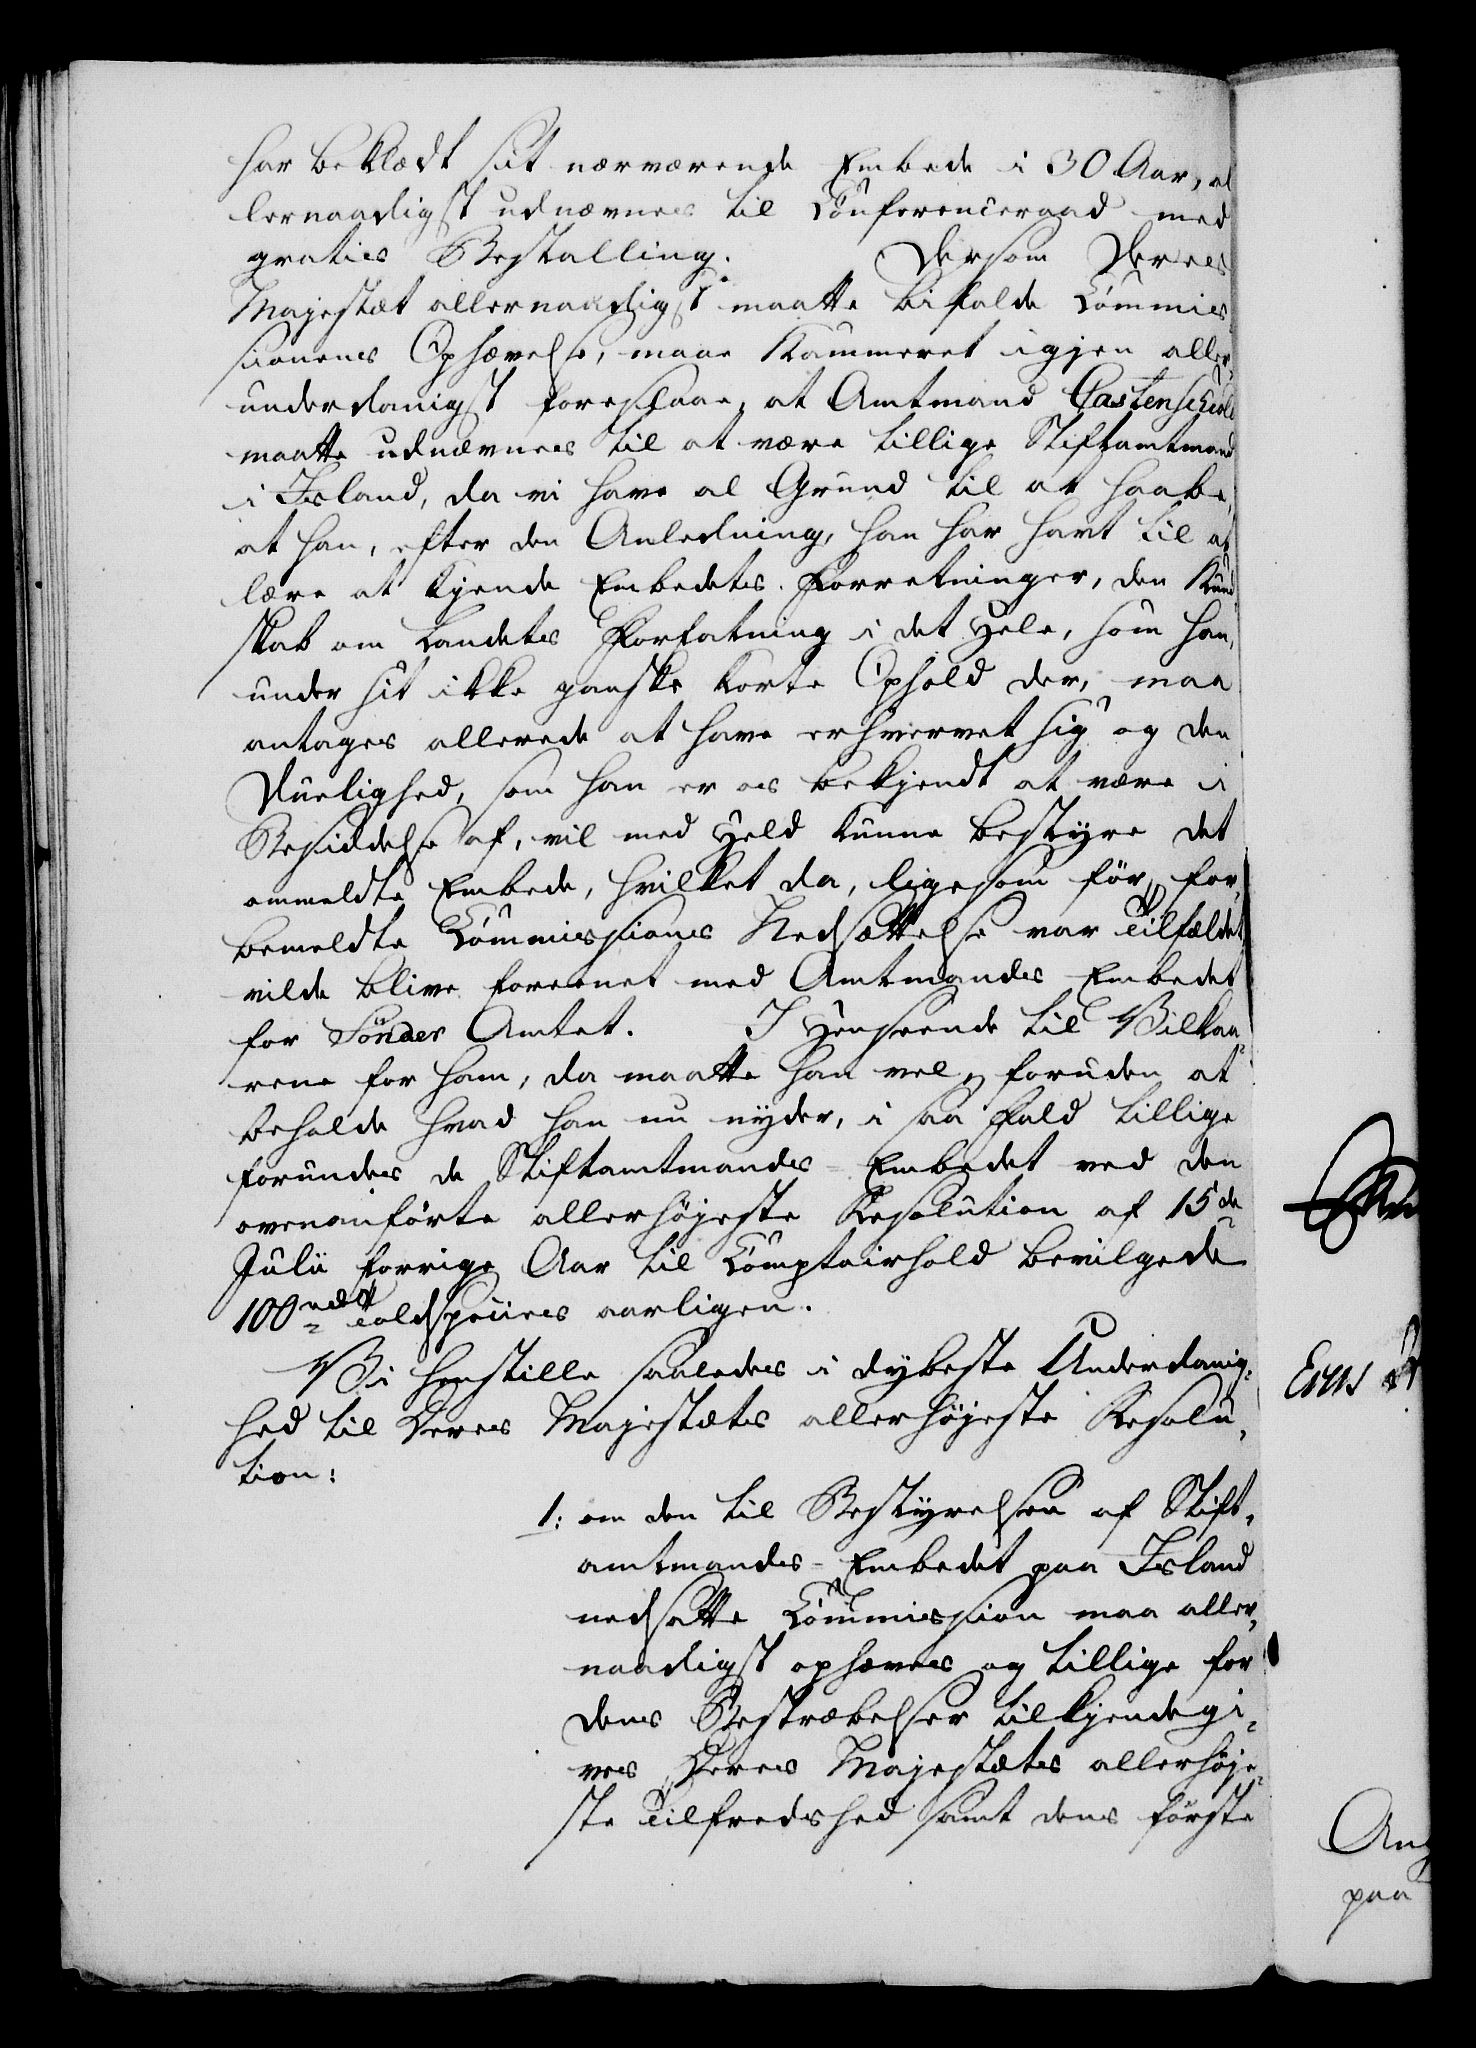 har beklædt sit nærværende Embede i 30 Aar, al
lernaadigst udnævnes til Conferenceraad med
gratis Bestalling. Dersom Deres
Majestæt allernaadigst maatte bifalde Commis
sionens Ophævelse, maae Kammeret igjen aller,
underdanigst foreslaae, at Amtmand Castenschiold
maatte udnævnes til at være tillige Stiftamtmand
i Island, da vi have al Grund til at haabe,
at han, efter den Anledning, han har havt til at
lære at kjende Embedets Forretninger, den Kund
skab om Landets Forfatning i det Hele, som han,
under sit ikke ganske korte Ophold der, maa
antages allerede at have erhvervet sig og den
Duelighed, som han er os bekjendt at være i
Besiddelse af, vil med Held kunne bestyre det
ommeldte Embede, hvilket da, ligesom før for,
bemeldte Commissions Nedsættelse var Tilfældet
vilde blive forenet med Amtmands Embedet
for Sønder Amtet. I Henseende til Vilkaa¬
rene for ham, da maatte han vel, foruden at
beholde hvad han nu nyder, i saa Fald tillige
forundes de Stiftamtmands-Embedet ved den
ovenanførte allerhøjeste Resolution af 15de
Julii forrige Aar til Comptoirhold bevilgede
100 rdlr aarligen.
Vi henstille saaledes i dybeste Underdanig¬
hed til Deres Majestæts allerhøjeste Resolu¬
tion:
1: om den til Bestyrelsen af Stift¬
amtmands-Embedet paa Island
nedsatte Commission maa aller¬
naadigst ophæves og tillige for
dens Bestræbelser tilkjendegi¬
ves Deres Majestæts allerhøje¬
ste Tilfredshed samt dens første
paa